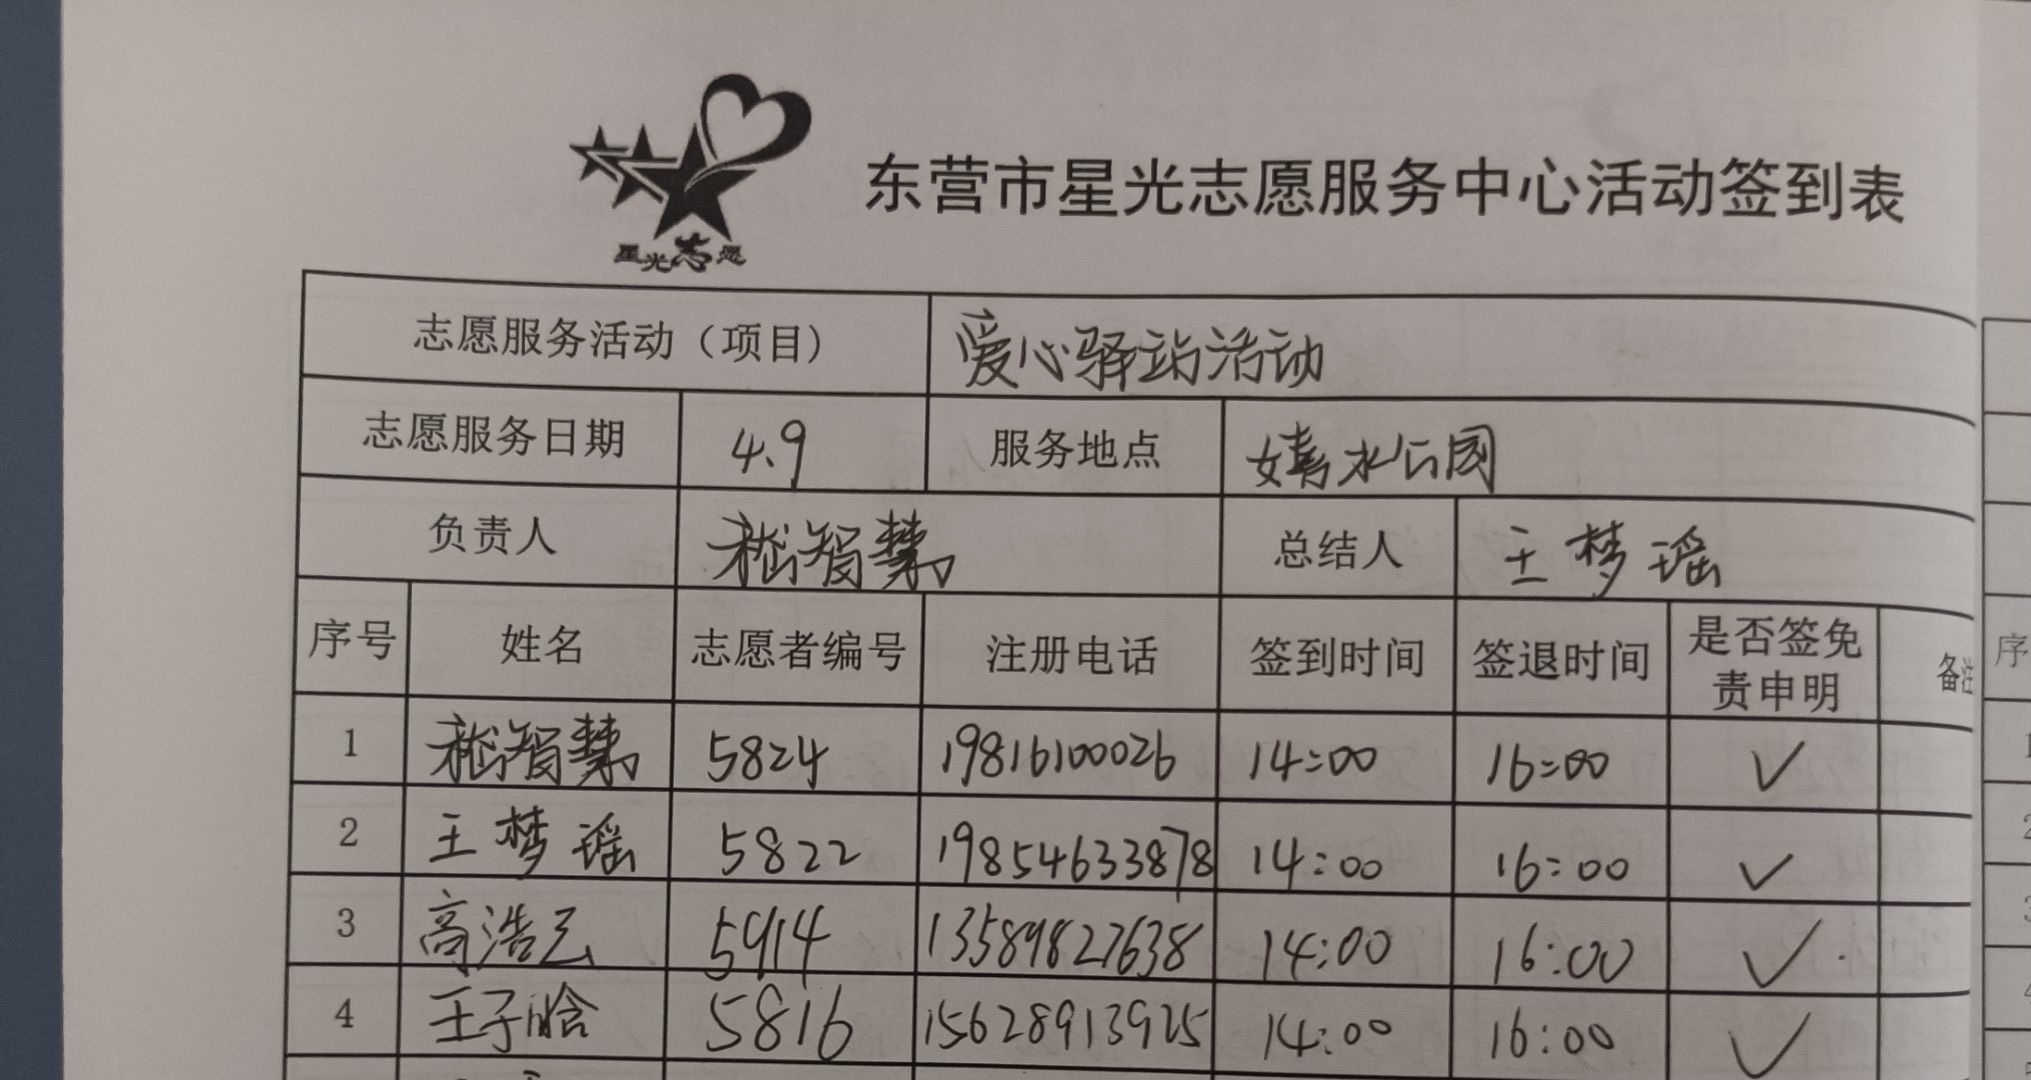 星光志愿
东营市星光志愿服务中心活动签到表
志愿服务活动（项目） 爱心驿站活动
志愿服务日期 4.9 服务地点 嬉水公园
负责人 嵇智慧 总结人 王梦瑶
序号 姓名 志愿者编号 注册电话 签到时间 签退时间 是否签免责申明 备注 序
1 嵇智慧 5824 19816100026 14:00 16:00 ✓
2 王梦瑶 5822 19854633878 14:00 16:00 ✓
3 高浩云 5914 13589827638 14:00 16:00 ✓
4 王子晗 5816 15628913925 14:00 16:00 ✓